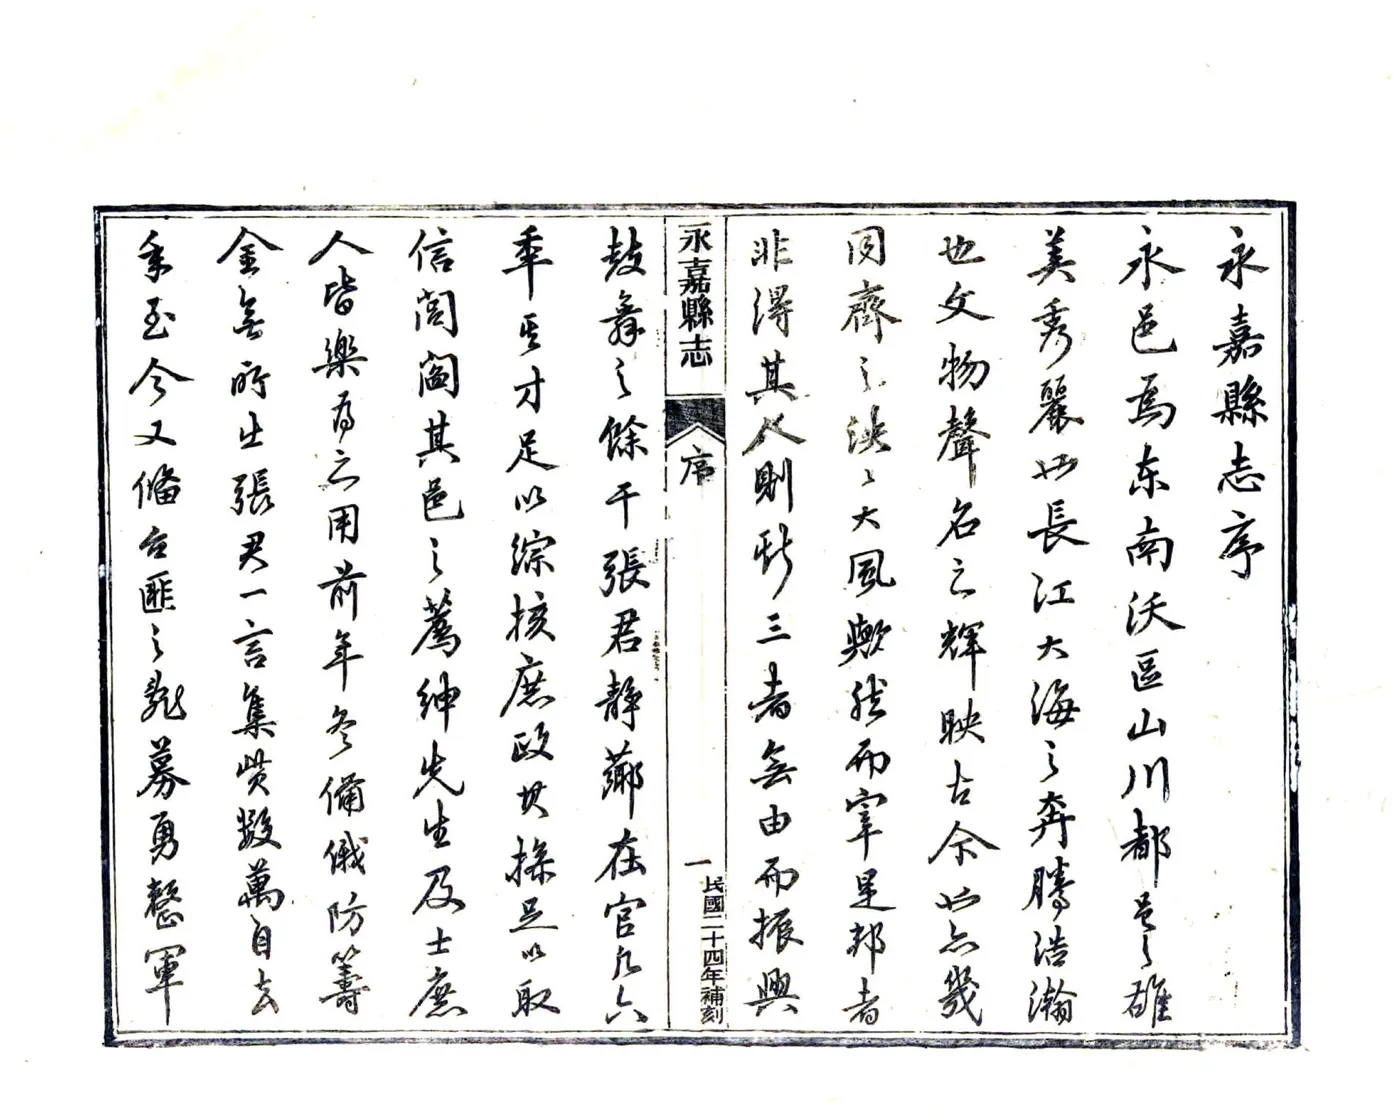 永嘉縣志序
永邑為东南沃區山川都邑之雄
美秀麗如長江大海之奔騰浩瀚
也文物聲名之輝映古今如亦幾
同齊之泱〻大風歟然而宰是邦者
非得其人則斯三者無由而振興
永嘉縣志
序
一
民國二十四年補刻
鼓舞之餘干張君靜薌在官凡六
年其才足以綜核庶政其操足以取
信閭閻其邑之薦紳先生及士庶
人皆樂為之用前年冬備俄防籌
金無所出張君一言集貲數萬自去
年至今又偹台匪之亂募勇整軍